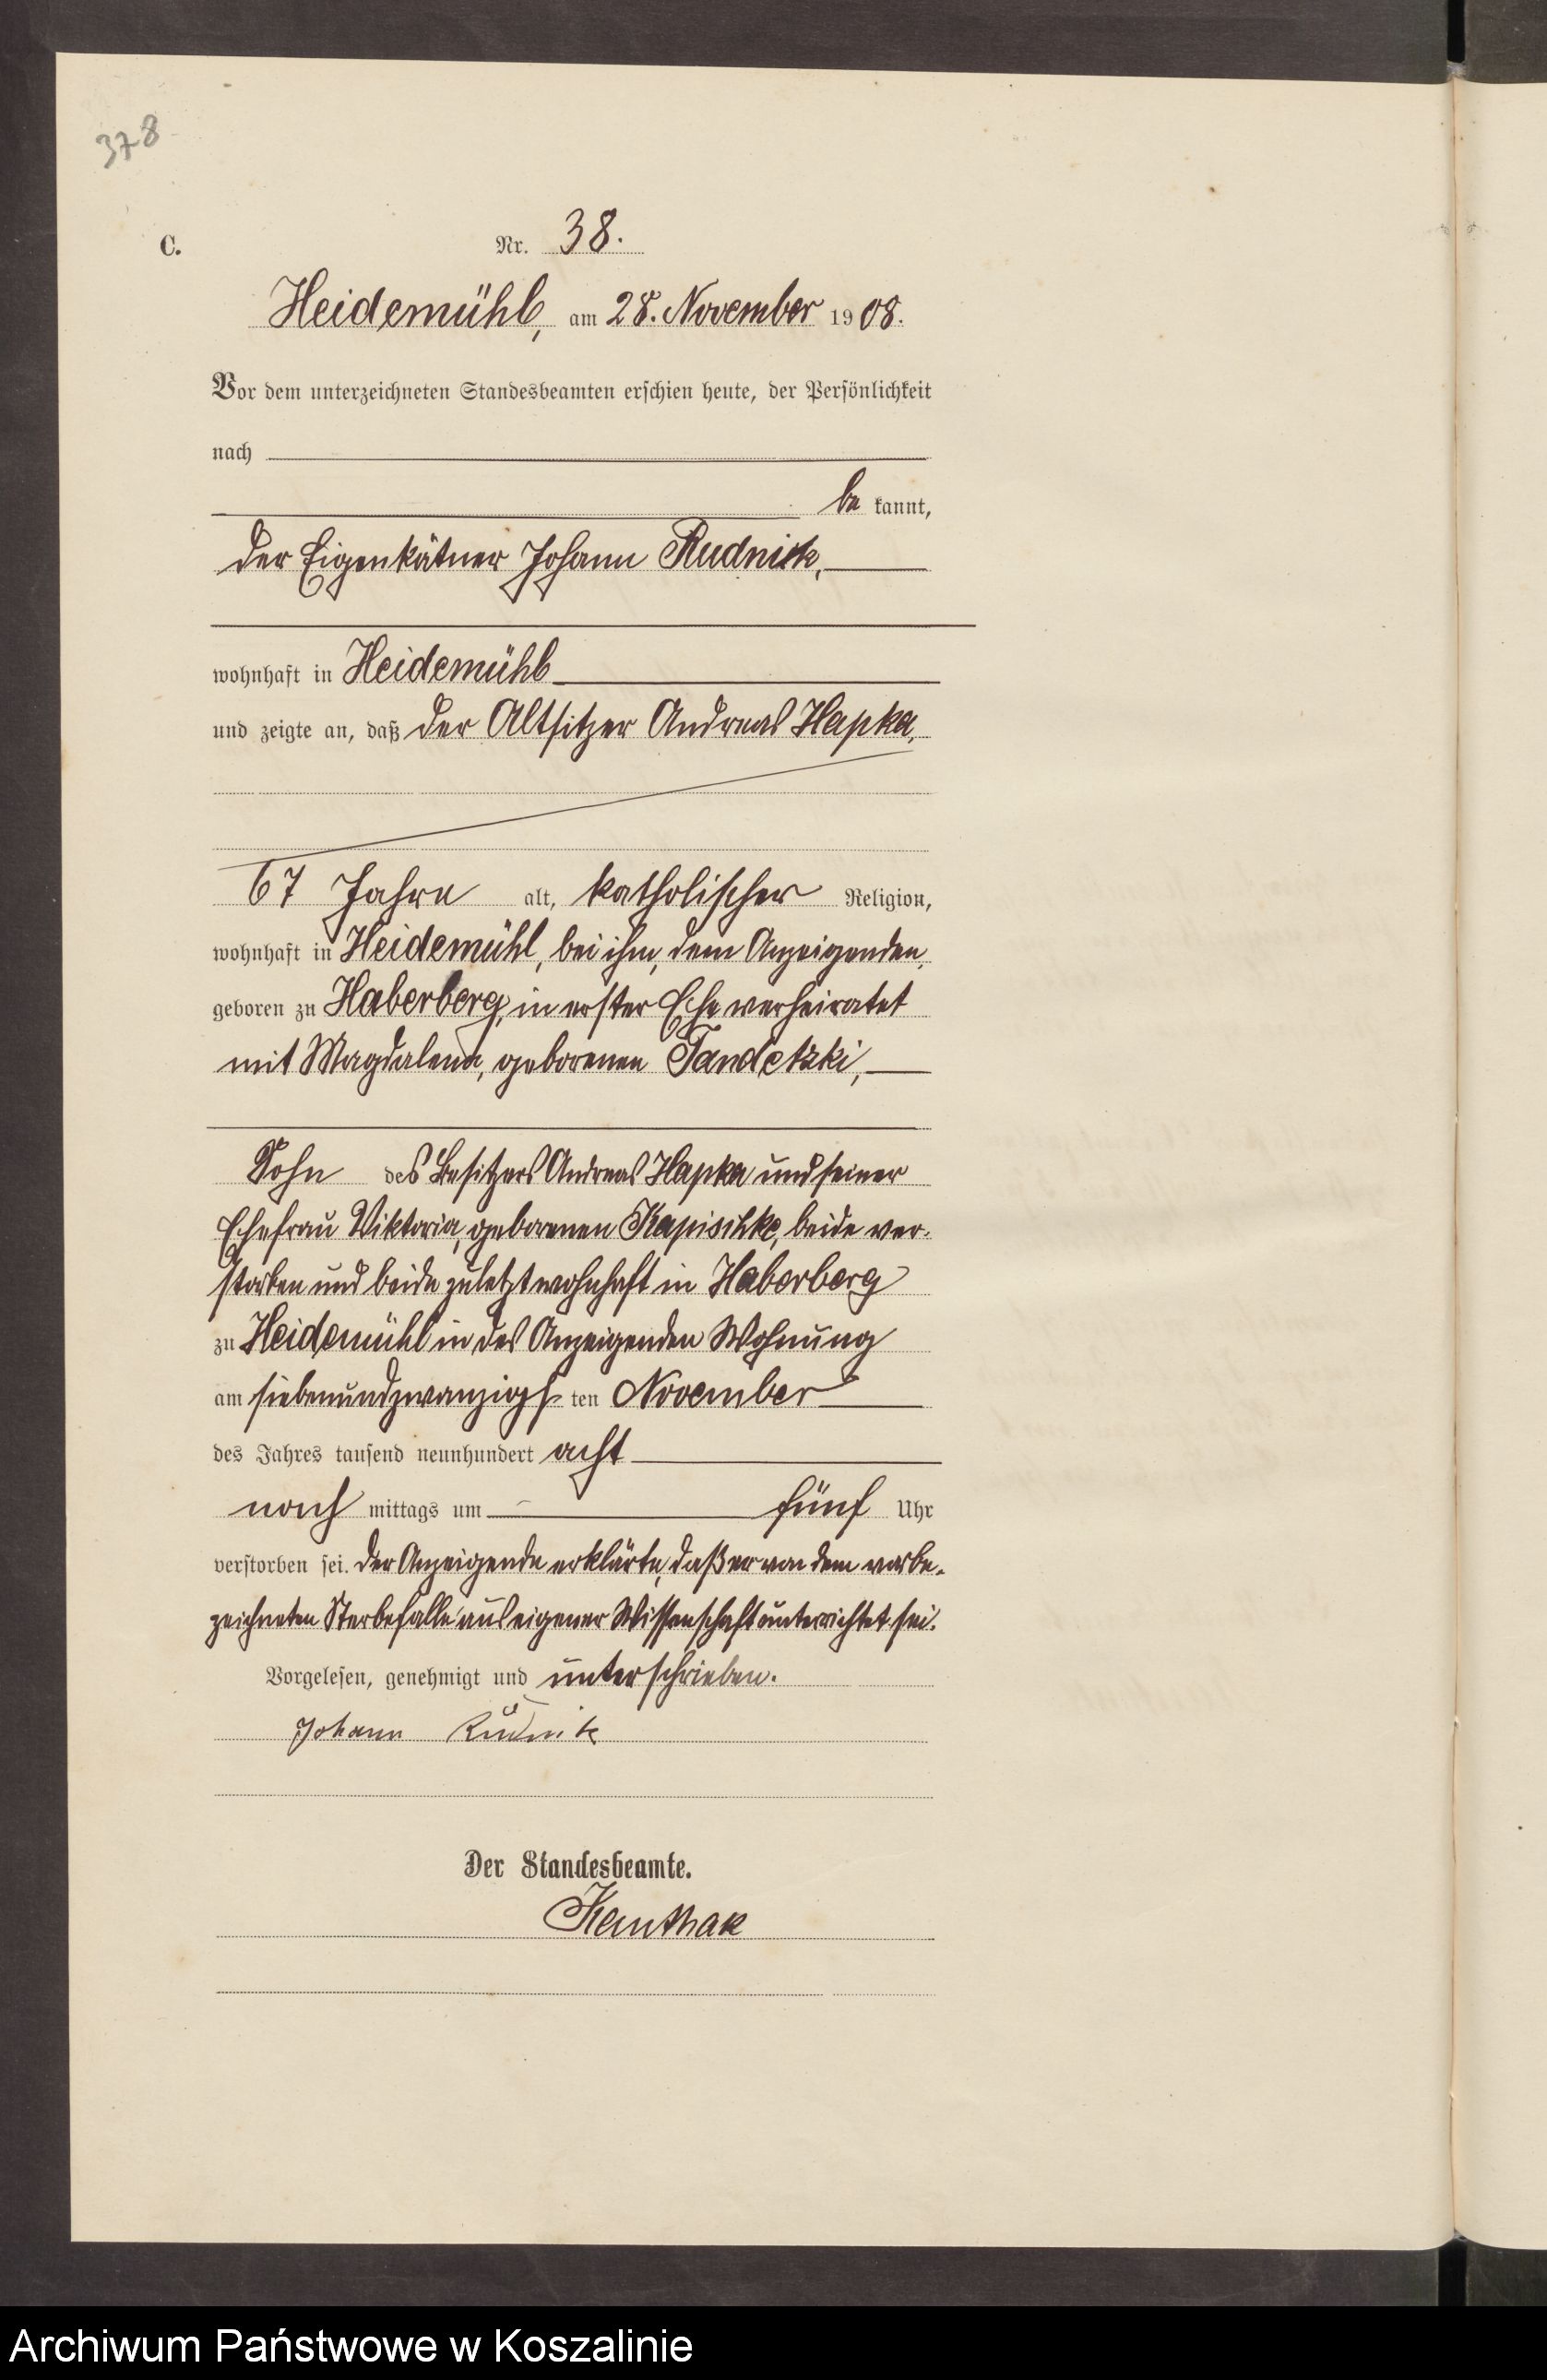 378
C.
Nr. 38.
Heidemühl, am 28. November 1908.
Vor dem unterzeichneten Standesbeamten erschien heute, der Persönlichkeit
nach
be kannt,
der Eigenkätner Johann Rudnick,
wohnhaft in Heidemühl
und zeigte an, daß der Altsitzer Andreas Hapka,
67 Jahre alt, katholischer Religion,
wohnhaft in Heidemühl, bei ihm, dem Anzeigenden,
geboren zu Haberberg, in erster Ehe verheiratet
mit Magdalena, geborenen Tandetzki,
Sohn des Besitzers Andreas Hapka und seiner
Ehefrau Viktoria, geborenen Kapischke, beide ver-
storben und beide zuletzt wohnhaft in Haberberg
zu Heidemühl in des Anzeigenden Wohnung
am siebenundzwanzigsten November
des Jahres tausend neunhundert acht
nach mittags um fünf Uhr
verstorben sei. Der Anzeigende erklärte, daß er von dem vorbe-
zeichneten Sterbefalle aus eigener Wissenschaft unterrichtet sei.
Vorgelesen, genehmigt und unterschrieben.
Johann Rudnik
Der Standesbeamte.
Archiwum Państwowe w Koszalinie